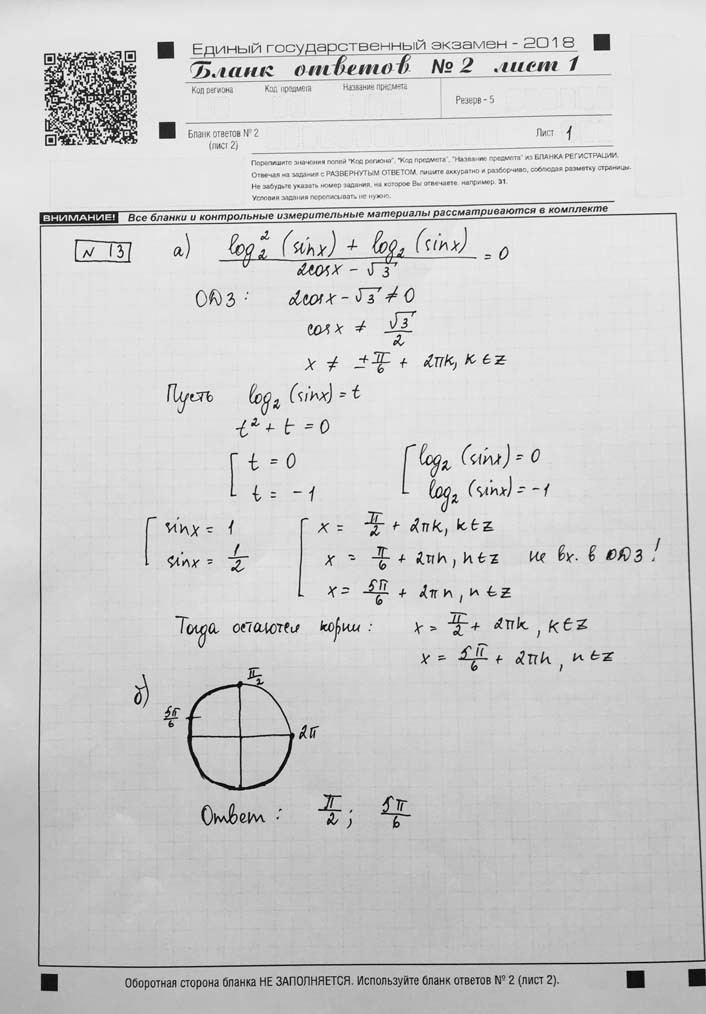 Единый государственный экзамен - 2018
Бланк ответов № 2 лист 1
Код региона Код предмета Название предмета
Резерв - 5
Бланк ответов № 2
(лист 2)
Лист 1
Перепишите значения полей "Код региона", "Код предмета", "Название предмета" из БЛАНКА РЕГИСТРАЦИИ.
Отвечая на задания с РАЗВЕРНУТЫМ ОТВЕТОМ, пишите аккуратно и разборчиво, соблюдая разметку страницы.
Не забудьте указать номер задания, на которое Вы отвечаете, например, 31.
Условия задания переписывать не нужно.
ВНИМАНИЕ! Все бланки и контрольные измерительные материалы рассматриваются в комплекте
N 13 а) (log₂²(sinx) + log₂(sinx)) / (2cosx - √3) = 0
ОДЗ: 2cosx - √3 ≠ 0
cosx ≠ √3/2
x ≠ ±π/6 + 2πk, k∈z
Пусть log₂(sinx) = t
t² + t = 0
[ t = 0 [ log₂(sinx) = 0
t = -1 log₂(sinx) = -1
[ sinx = 1 [ x = π/2 + 2πk, k∈z
sinx = 1/2 x = π/6 + 2πn, n∈z не вх. в ОДЗ!
x = 5π/6 + 2πn, n∈z
Тогда остаются корни: x = π/2 + 2πk, k∈z
x = 5π/6 + 2πn, n∈z
б) π/2
5π/6
2π
Ответ: π/2; 5π/6
Оборотная сторона бланка НЕ ЗАПОЛНЯЕТСЯ. Используйте бланк ответов № 2 (лист 2).